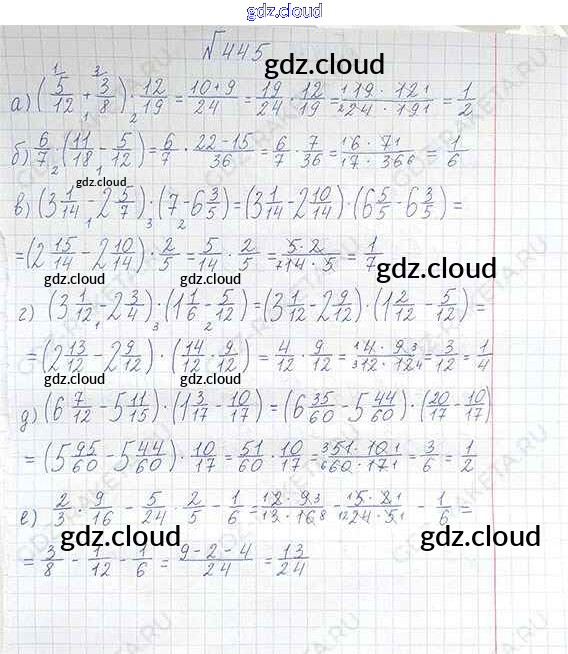 gdz.cloud
№445
gdz.cloud
а) (5/12 + 3/8) · 12/19 = (10+9)/24 = 19/24 · 12/19 = (19 · 12)/(24 · 19) = 1/2
gdz.cloud
б) 6/7 · (11/18 - 5/12) = 6/7 · (22-15)/36 = 6/7 · 7/36 = (6 · 7)/(7 · 36) = 1/6
gdz.cloud
в) (3 1/14 - 2 5/7) · (7 - 6 3/5) = (3 1/14 - 2 10/14) · (6 5/5 - 6 3/5) =
= (2 15/14 - 2 10/14) · 2/5 = 5/14 · 2/5 = (5 · 2)/(14 · 5) = 1/7
gdz.cloud
gdz.cloud
gdz.cloud
г) (3 1/12 - 2 3/4) · (1 1/6 - 5/12) = (3 1/12 - 2 9/12) · (1 2/12 - 5/12) =
= (2 13/12 - 2 9/12) · (14/12 · 9/12) = 4/12 · 9/12 = (4 · 9)/(12 · 12) = 3/12 = 1/4
gdz.cloud
gdz.cloud
д) (6 7/12 - 5 11/15) · (1 3/17 - 10/17) = (6 35/60 - 5 44/60) · (20/17 - 10/17)
= (5 95/60 - 5 44/60) · 10/17 = 51/60 · 10/17 = (51 · 10)/(60 · 17) = 3/6 = 1/2
е) 2/3 · 9/16 - 5/24 · 2/5 - 1/6 = (2 · 9)/(3 · 16) - (5 · 2)/(24 · 5) - 1/6 =
gdz.cloud
gdz.cloud
= 3/8 - 1/12 - 1/6 = (9-2-4)/24 = 13/24